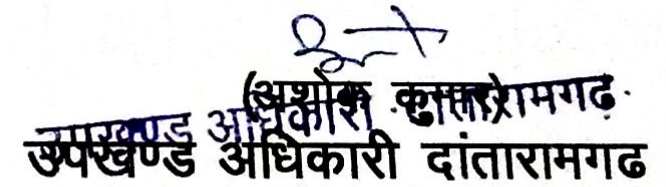 (अशोक कुमार)
उपखण्ड अधिकारी दांतारामगढ़
उपखण्ड अधिकारी दांतारामगढ